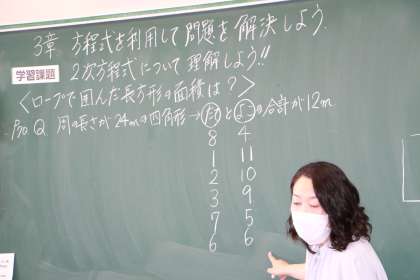 3章 方程式を利用して問題を解決しよう
学習課題 2次方程式について理解しよう!!
<ロープで囲んだ長方形の面積は?>
Pro Q 周の長さが24mの四角形→たてとよこの合計が12m
8 4
1 11
2 10
3 9
7 5
6 6